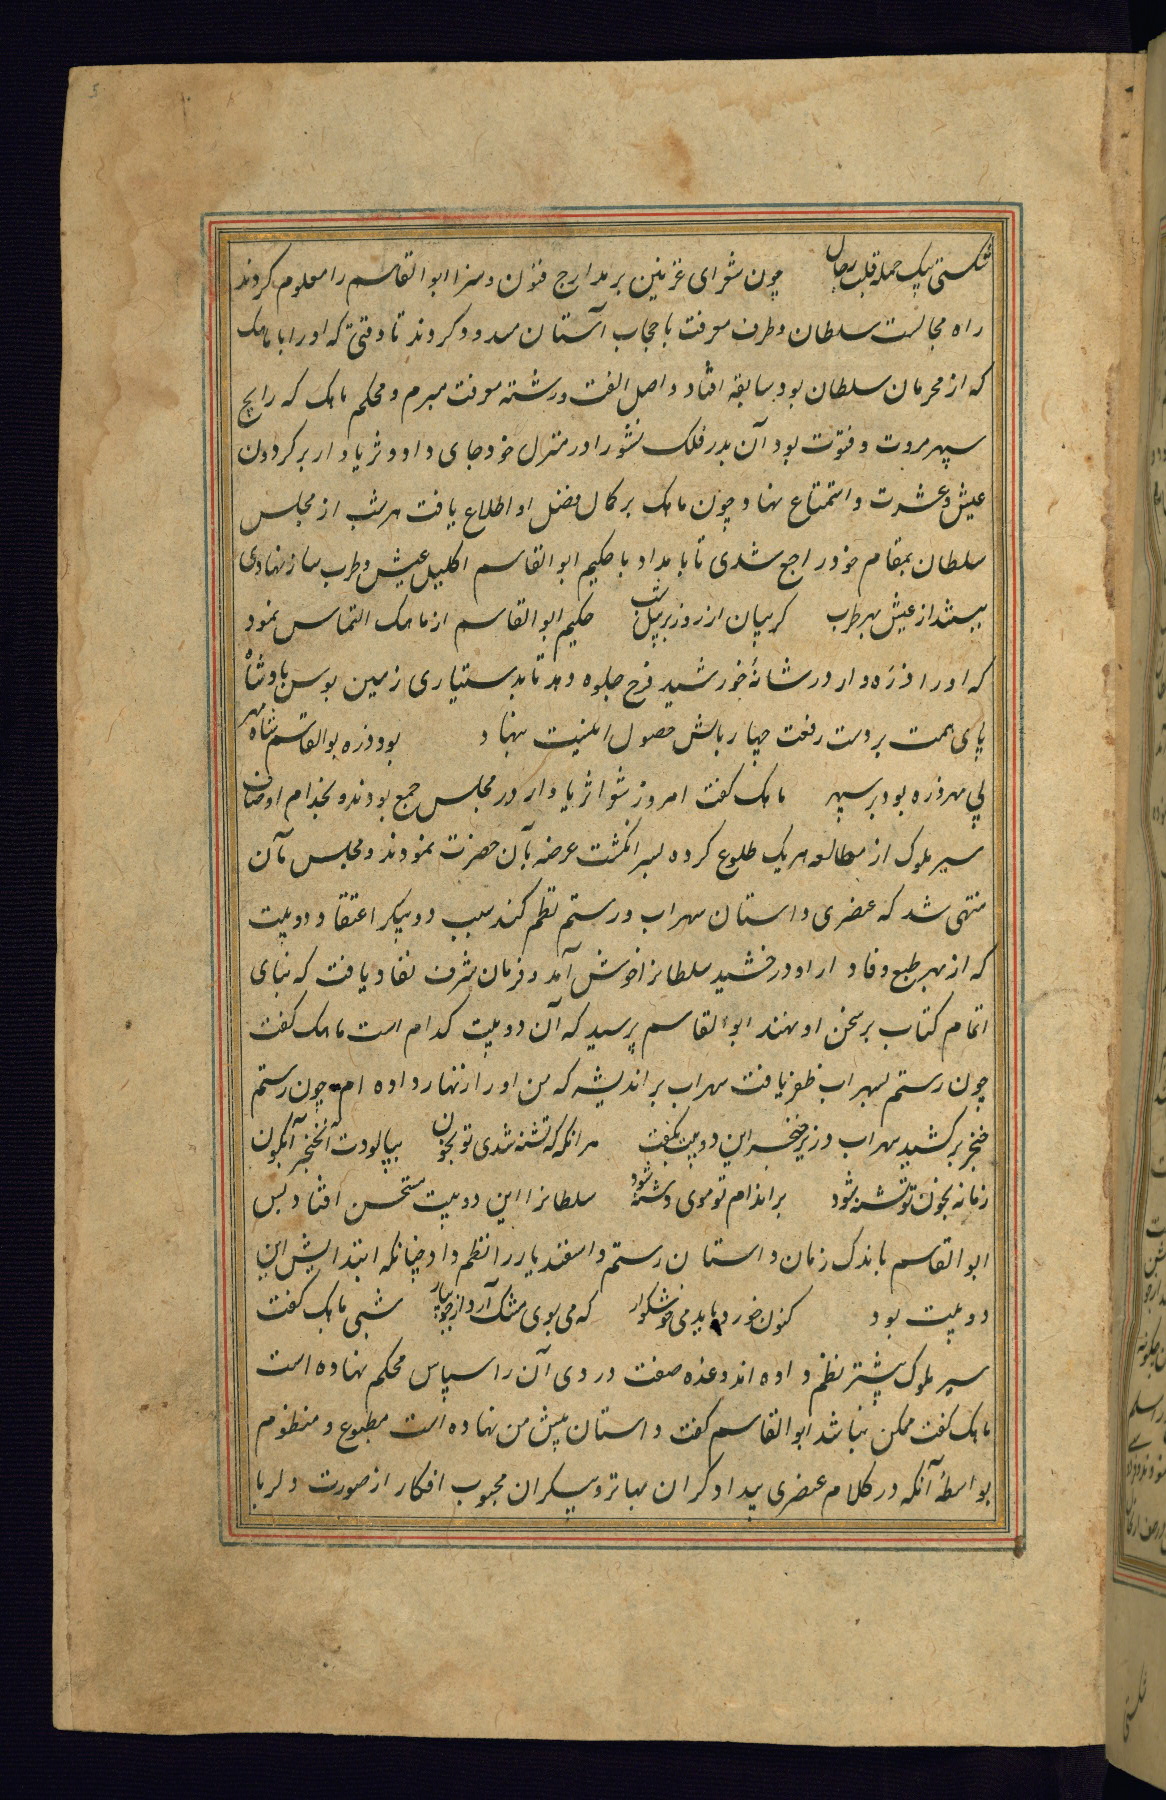 شکستی بیک حمله قلب رجال چون شعرای غزنین بر مدارج فنون و سزا ابوالقاسم را معلوم کردند
راه مجالست سلطان و طرف معرفت با حجاب آستان مسدود کردند تا وقتی که او را با ماهک
که از محرمان سلطان بود سابقه افتاد و اصل الفت و رشته معرفت مبرم و محکم ماهک که رایج
سپهر مروت و فتوت بود آن بدر فلک را در منزل خود جای داد و ثریا وار بر گردون
عیش و عشرت و استمتاع نهاد و چون ماهک بر کمال فضل او اطلاع یافت هر شب از مجلس
سلطان بمقام خود راجع شدی تا بامداد با حکیم ابوالقاسم اکلیل عیش و طرب ساز نهادی
ببستند از عیش بهر طرب گریبان از روز بر بیل شب حکیم ابوالقاسم از ماهک التماس نمود
که او را ذره وار در شانه خورشید فرح جلوه دهد تا بدستیاری زمین بوس پادشاه
پای همت بر دست رفعت چهار بالش حصول امنیت نهاد بود ذره بوالقاسم شاه مهر
پی مهر ذره بود بر سپهر ماهک گفت امروز شعرا ثریا وار در مجلس جمع بودند و بخدام اوصاف
سیر ملوک از مطالعه هر یک طلوع کرده بسر انگشت عرضه بآن حضرت نمودند و مجلس بآن
منتهی شد که عنصری داستان سهراب و رستم نظم کند سبب دو پیکر اعتقاد دو بیت
که از مهر طبع وقاد او در خشید سلطانرا خوش آمد و فرمان شرف نفاد یافت که بنای
اتمام کتاب بر سخن او نهند ابوالقاسم پرسید که آن دو بیت کدام است ماهک گفت
چون رستم بسهراب ظفر یافت سهراب بر اندیشه که من او را زنهار داده ام چون رستم
خنجر برکشید سهراب در زیر خنجر این دو بیت بگفت هر آنکه که تشنه شدی تو بخون بیالودت آن خنجر آبگون
زمانه بخون تو تشنه شود بر اندام تو موی دشنه شود سلطانرا این دو بیت مستحسن افتاد پس
ابوالقاسم باندک زمان داستان رستم و اسفندیار را نظم داد چنانکه ابتدایش این
دو بیت بود کنون خورد باید می خوشگوار که می بوی مشک آرد از جویبار شبی ماهک گفت
سیر ملوک پیشتر نظم داده اند و در وی آن را سپاس محکم نهاده است
ماهک گفت ممکن نباشد ابوالقاسم گفت داستان پیش من نهاده است مطبوع و منظوم
بواسطه آنکه در کلام عنصری محبوب افکار از صورت دلربا